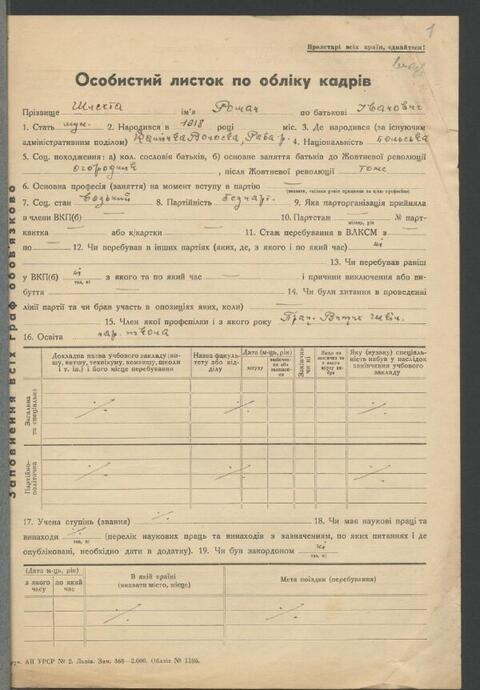 1
Пролетарі всіх країн, єднайтеся!
Особистий листок по обліку кадрів
Прізвище Шиєста ім'я Роман по батькові Іванович
1. Стать муж. 2. Народився в 1918 році міс. 3. Де народився (за існуючим
адміністративним поділом) Волоська, Рава-р. 4. Національність польська
5. Соц. походження: а) кол. сословіє батьків, б) основне заняття батьків до Жовтневої революції
огородник, після Жовтневої революції тоже
6. Основна професія (заняття) на момент вступу в партію —
7. Соц. стан 8. Партійність безпарт. 9. Яка парторганізація прийняла
в члени ВКП(б) — 10. Партстаж — № парт-
квитка — або к/картки — 11. Стаж перебування в ВЛКСМ з —
по — 12. Чи перебував в інших партіях (яких, де, з якого і по який час) ні
13. Чи перебував раніш
у ВКП(б) ні з якого та по який час — і причини виключення або ви-
так, ні
буття — 14. Чи були хитання в проведенні
лінії партії та чи брав участь в опозиціях яких, коли) —
15. Член якої профспілки і з якого року
16. Освіта
Докладна назва учбового закладу (ви-
шу, втишу, технікуму, комвишу, школи
і т. ін.) і його місце перебування
Назва факуль-
тету або від-
ділу
Дата (м-ць, рік)
вступу
Закінчив
чи ні
Яку (вузьку) спеціаль-
ність набув у наслідок
закінчення учбового
закладу
Загальна
та спеціальна
Партійно-
політична
Заповнення всіх граф обов'язково
17. Учена ступінь (звання) 18. Чи має наукові праці та
винаходи (перелік наукових праць та винаходів з зазначенням, по яких питаннях і де
так, ні
опубліковані, необхідно дати в додатку). 19. Чи був закордоном ні
так, ні
(Дата м-ць, рік)
з якого
часу
по який
час
В якій країні
(вказати місто, місце)
Мета поїздки (перебування)
АН УРСР № 2. Львів. Зам. 368—2.000. Обліт № 1195.